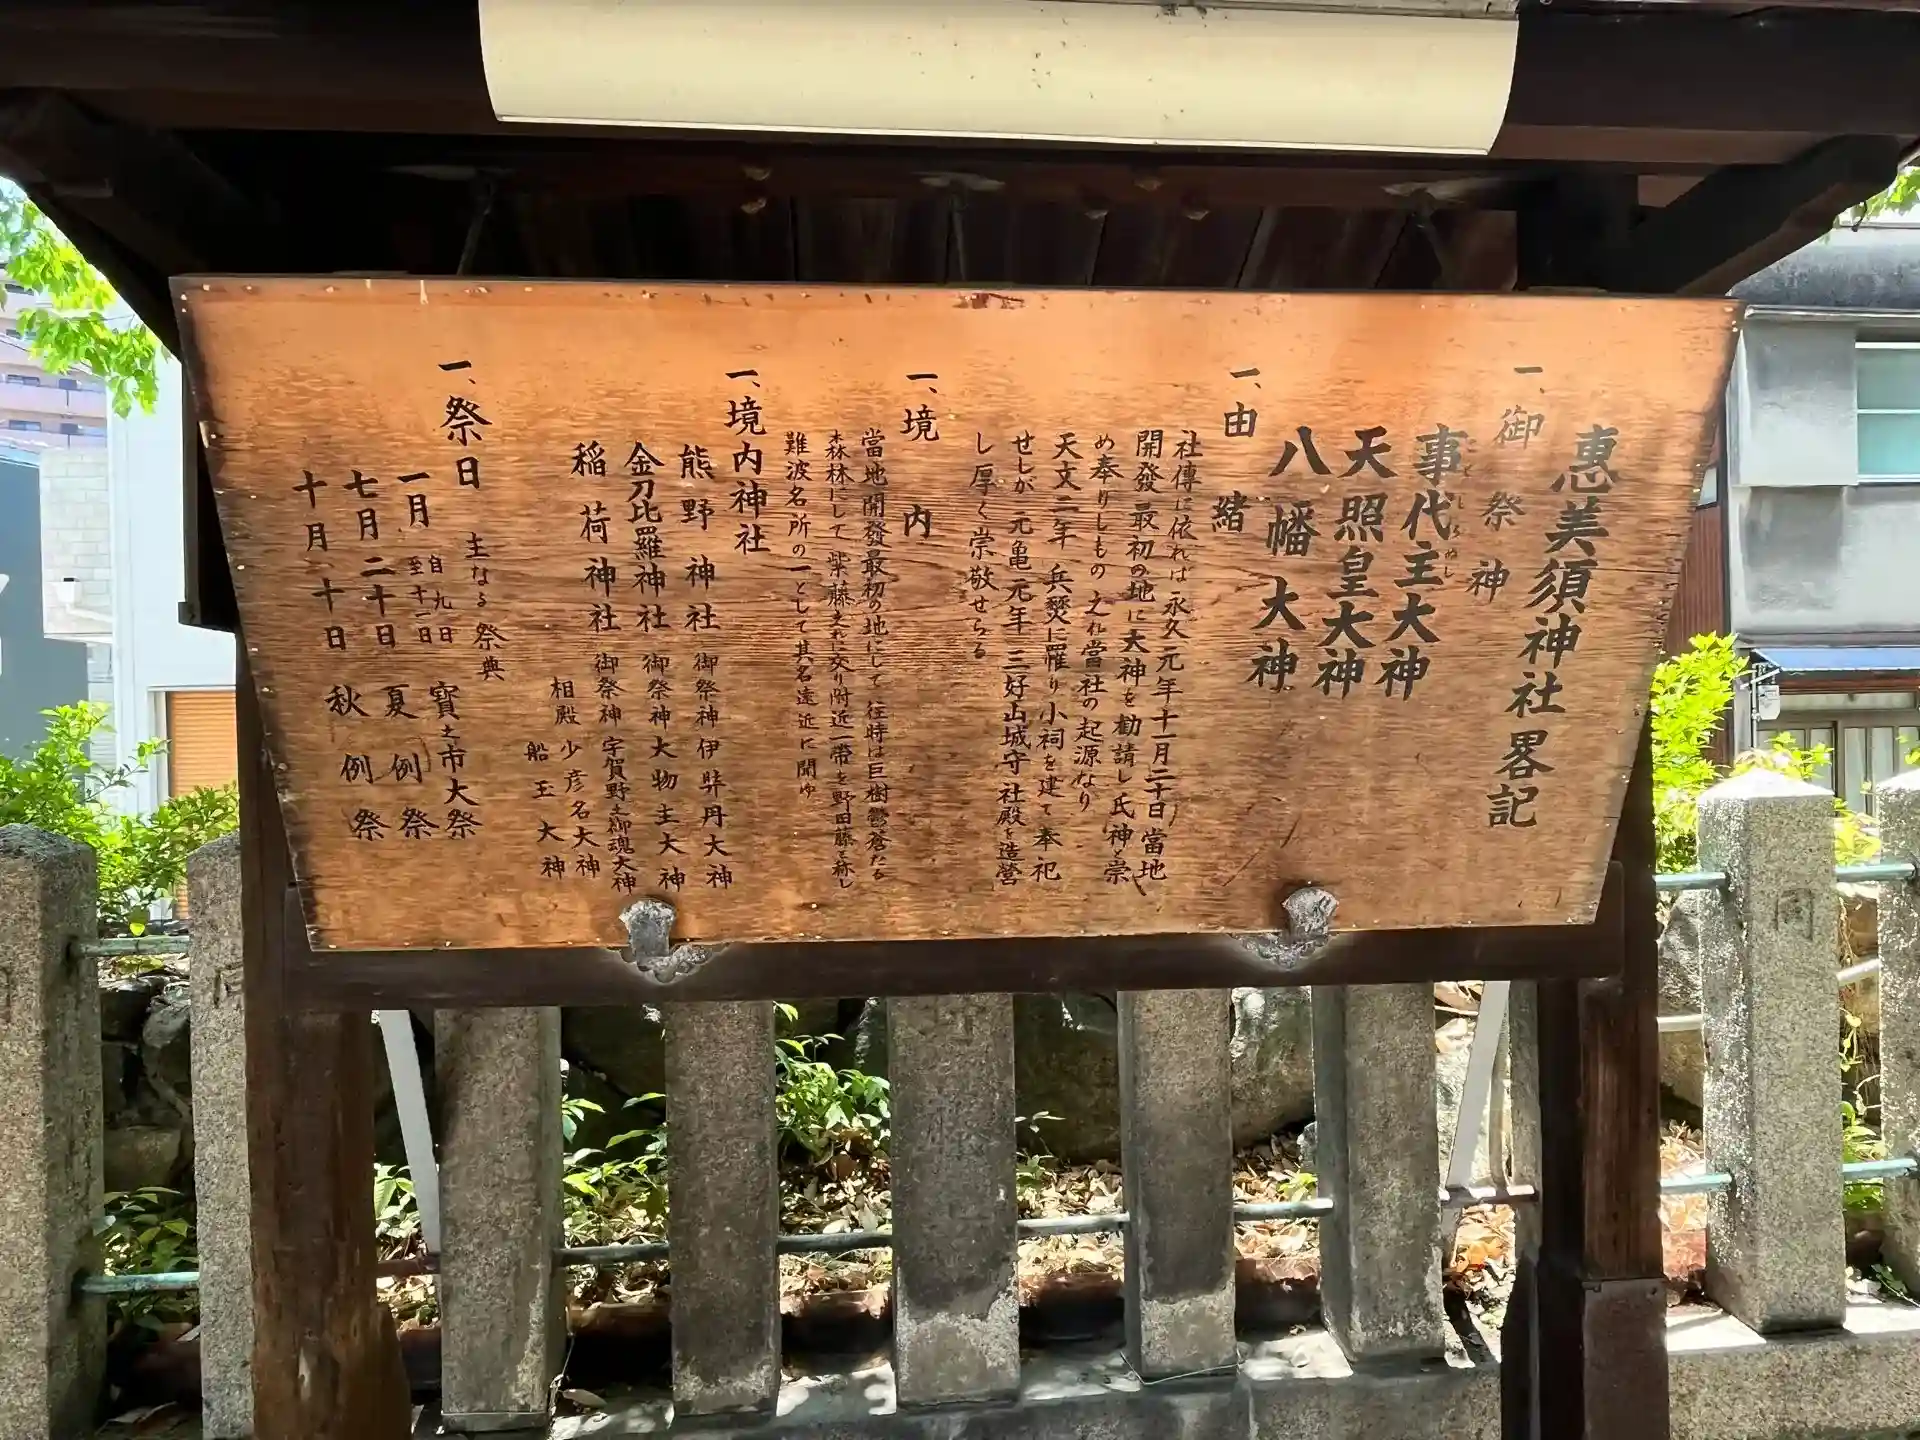 惠美須神社畧記
一、御祭神
事代主大神
ことしろぬし
天照皇大神
八幡大神
一、由緒
社傳に依れば永久元年十一月二十日當地
開發最初の地に大神を勸請し氏神と崇
め奉りしもの之れ當社の起源なり
天文二年兵燹に罹り小祠を建て奉祀
せしが元亀元年三好山城守社殿を造營
し厚く崇敬せらる
一、境内
當地開發最初の地にして往時は巨樹鬱蒼たる
森林にして紫藤之れに交り附近一帶を野田藤と称し
難波名所の一として其名遠近に聞ゆ
一、境内神社
熊野神社 御祭神 伊弉丹大神
金刀比羅神社 御祭神 大物主大神
稲荷神社 御祭神 宇賀野之御魂大神
相殿 少彦名大神
船玉大神
一、祭日 主なる祭典
一月 自九日 至十一日 寳之市大祭
七月二十日 夏例祭
十月十日 秋例祭